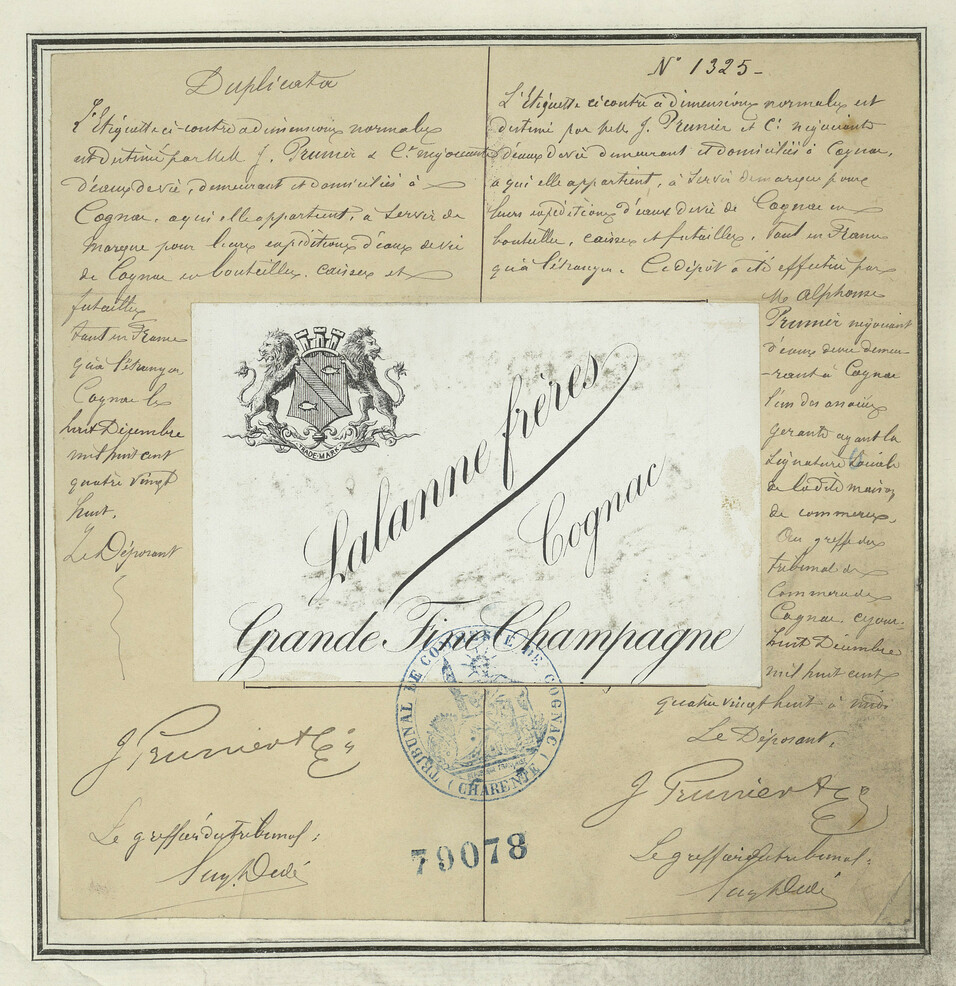 Duplicata
L'Etiquette ci-contre a dimensions normales
est destiné par M.M. J. Prunier & Cie negociants
d'eaux de vie, demeurant et domiciliés à
Cognac, a qui elle appartient, a servir de
marque pour leurs expéditions d'eaux de vie
de Cognac en bouteilles, caisses et
futailles
tant en France
qu'à l'étranger
Cognac le
huit Décembre
mil huit cent
quatre vingt
huit.
Le Déposant
J Prunier & Cie
Le greffier du tribunal:
N° 1325-
L'Etiquette ci contre à dimensions normales est
destiné par M.M. J. Prunier et Cie negociants
d'eaux de vie demeurant et domiciliés à Cognac,
a qui elle appartient, à servir de marque pour
leurs expéditions d'eaux de vie de Cognac en
bouteille, caisses et futailles, tant en France
qu'à l'étranger. Ce dépôt a été effectué par
M. Alphonse
Prunier négociant
d'eaux de vie demeu-
-rant à Cognac
l'un des associés
gerants ayant la
signature sociale
de la dite maison
de commerce.
Au greffe du
tribunal de
Commerce de
Cognac ce jour
huit Décembre
mil huit cent
quatre vingt huit à midi
Le Déposant,
J Prunier & Cie
Le greffier du tribunal:
TRADE-MARK
Lalanne frères
Cognac
Grande Fine Champagne
TRIBUNAL DE COMMERCE DE COGNAC
(CHARENTE)
79078